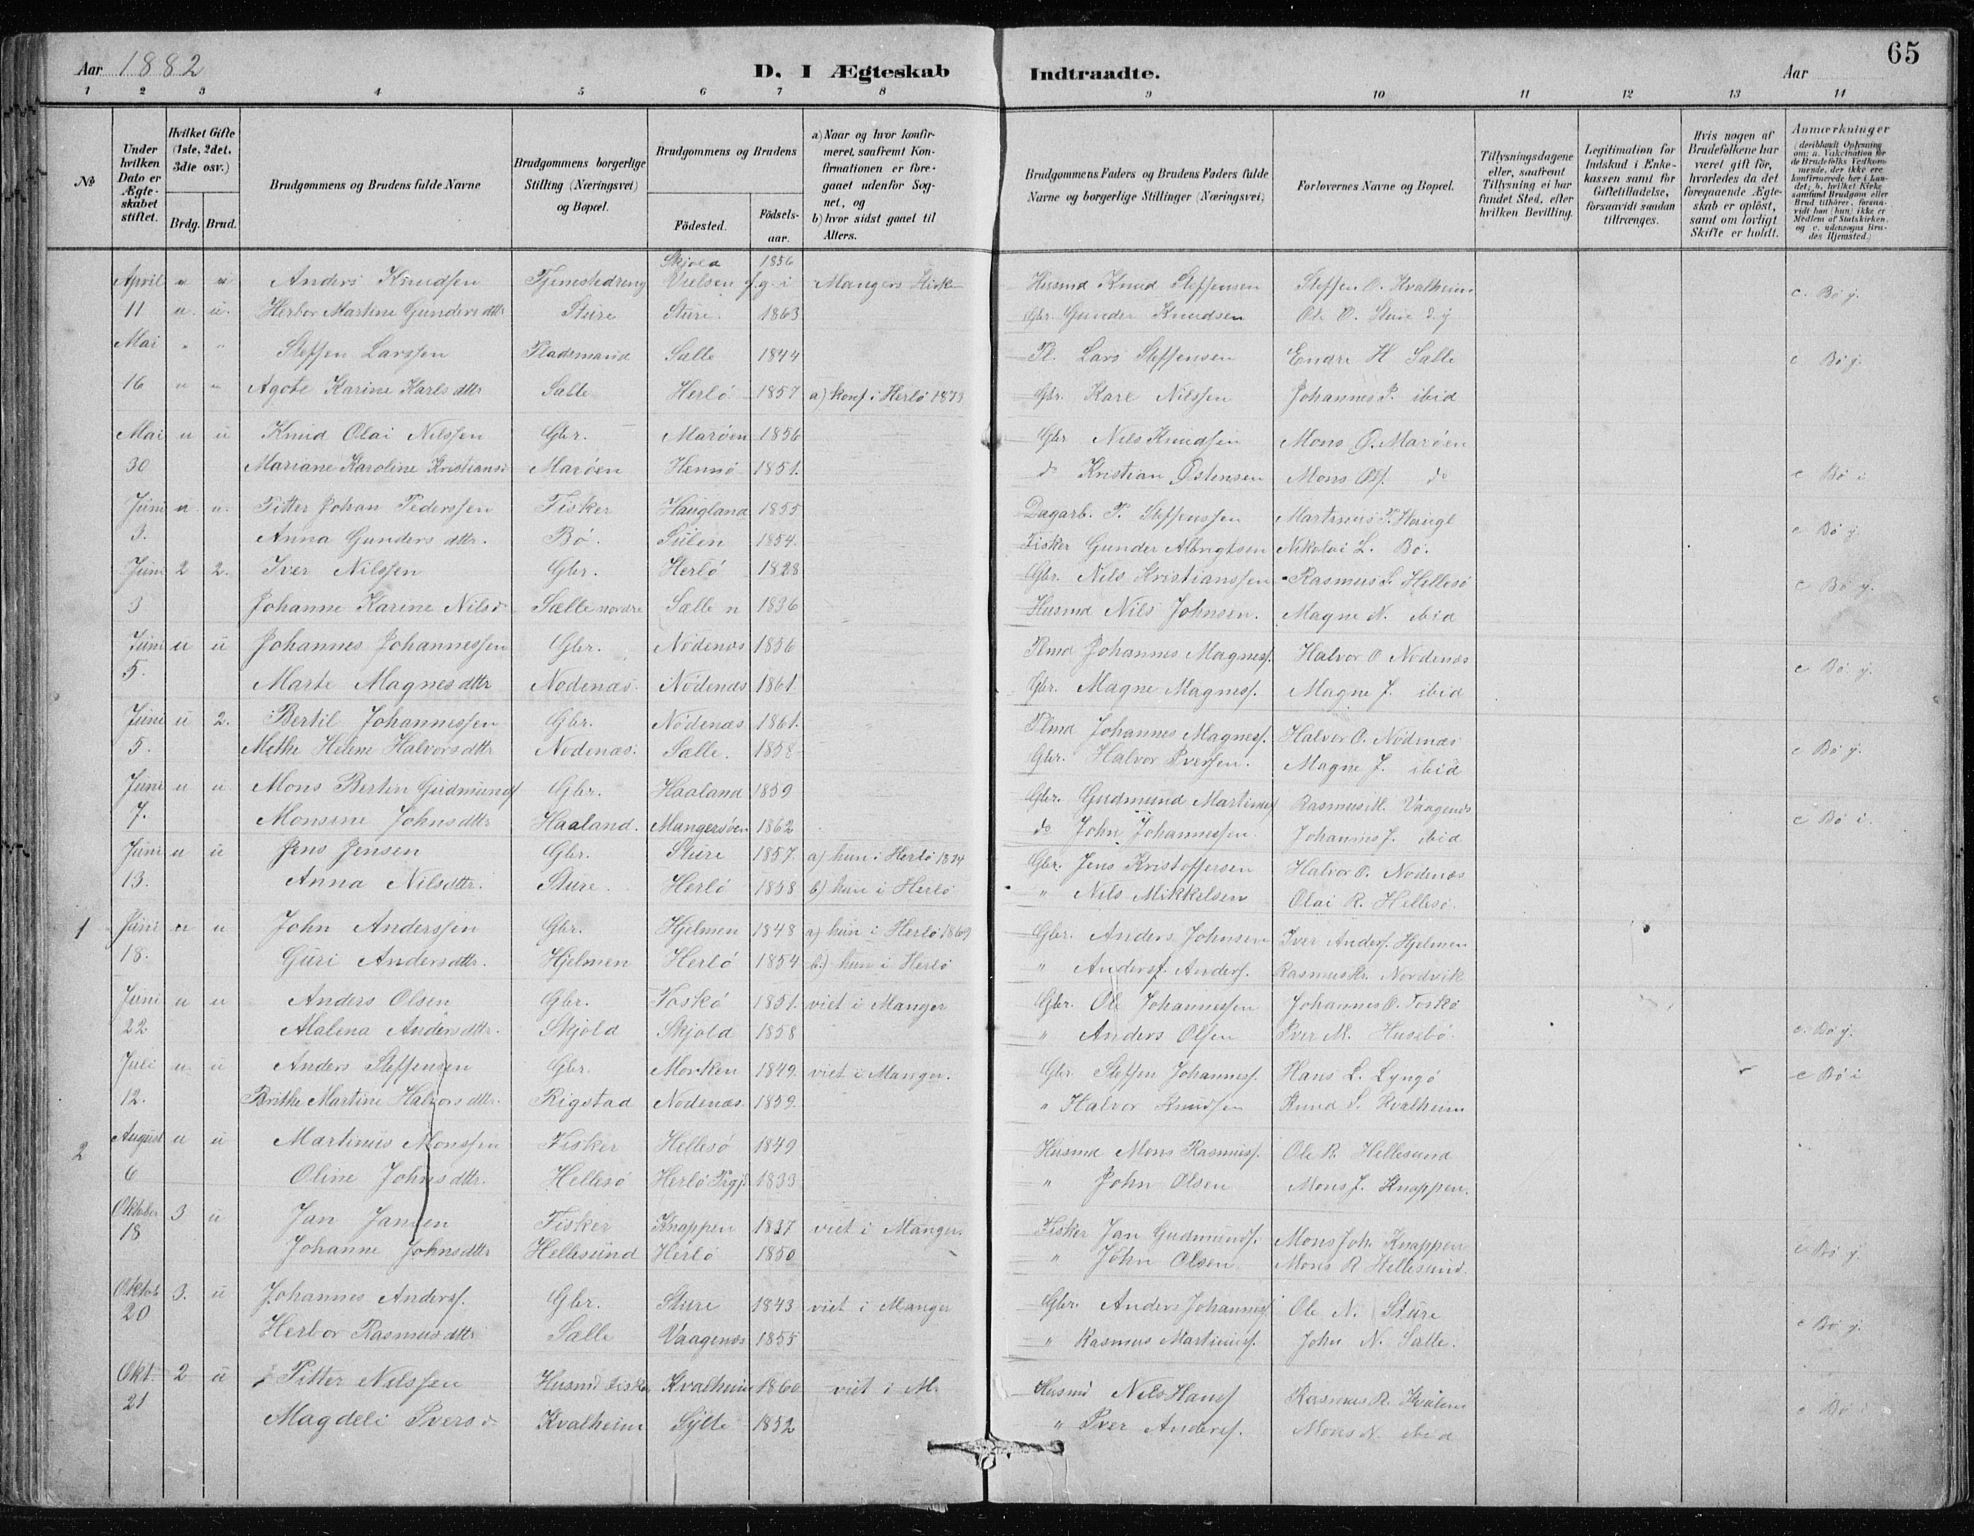 Aar 1882
D. I Ægteskab
Indtraadte.
Aar
65
1 2 3 4 5 6 7 8 9 10 11 12 13 14
No
Under hvilken Dato er Ægteskabet stiftet.
Hvilket Gifte (1ste, 2det, 3die osv.)
Brdg. Brud.
Brudgommens og Brudens fulde Navne
Brudgommens borgerlige Stilling (Næringsvei) og Bopæl.
Brudgommens og Brudens
Födested.
Födselsaar.
a) Naar og hvor konfirmeret, saafremt Konfirmationen er foregaaet udenfor Sognet, og
b) hvor sidst gaaet til Alters.
Brudgommens Faders og Brudens Faders fulde Navne og borgerlige Stillinger (Næringsvei)
Forlovernes Navne og Bopæl.
Tillysningsdagene eller, saafremt Tillysning ei har fundet Sted, efter hvilken Bevilling.
Legitimation for Indskud i Enkekassen samt for Giftetilladelse, forsaavidt saadan tiltrænges.
Hvis nogen af Brudefolkene har været gift för, hvorledes da det foregaaende Ægteskab er oplöst, samt om lovligt Skifte er holdt.
Anmærkninger (deriblandt Oplysning om: a. Vakcination for de Brudefolks Vedkommende, der ikke ere konfirmerede her i Landet; b. hvilket Kirkesamfund Brudgom eller Brud tilhörer, forsaavidt han (hun) ikke er Medlem af Statskirken, og c. udensogns Brudes Hjemsted.)
April " " Anders Knudsen Tjenestedreng Skjold 1856 f.g. i Mangers Kirke Husmd Knud Steffensen Steffen O. Kvalheim c. Bø y.
11 u. u. Herbor Martine Gundersdttr Sture Sture 1863 Gbr. Gunder Knudsen Ole O. Sture
Mai " " Steffen Larssen Pladsmand Sælle 1844 Pl. Lars Steffensen Endre H Sælle c Bø y.
16 " " Agote Karine Karlsdttr Sælle Herlø 1857 a) konf i Herlø 1873 Gbr. Karl Nilssen Johannes P. ibid
Mai u u Knud Olai Nilssen Gbr. Marøen 1856 Gbr Nils Knudsen Mons O. Marøen
30 Mariane Karoline Kristiansd Marøen Hennø 1851. do Kristian Østensen Mons Ols. do c Bø i
Juni u u. Pitter Johan Pederssen Fisker Haugland 1855 Dagarb. P. Steffenssen Martinus P. Haugl
3. Anna Gundersdttr. Bø. Sulen 1854. Fisker Gunder Albrigtsen Nikolai L. Bø. c Bø y.
Juni 2 2. Iver Nilssen Gbr. Herlø 1828 Gbr. Nils Kristianssen Rasmus L. Hellesø c Bø y.
3 Johanne Karine Nilsd Sælle nordre Sælle n 1836 Husmd Nils Johnsen. Magne N. ibid
Juni u u Johannes Johannessen Gbr. Nødenæs 1856 Plmd Johannes Magness. Halvor O. Nødenæs c Bø y.
5. Marte Magnesdttr Nødenæs. Nødenæs 1861. Gbr. Magne Magness. Magne J. ibid
Juni u 2. Bertil Johannessen Gbr. Nødenæs 1861. Plmd Johannes Magness. Halvor O. Nødenæs
5. Methe Helene Halvorsdttr Nødenæs. Sælle. 1858. Gbr. Halvor Iverssen. Magne J. ibid c Bø y.
Juni u u Mons Bertin Gudmunds Gbr. Haaland 1859 Gbr. Gudmund Martinus Rasmus M. Vaagenes
7. Monsine Johnsdttr Haaland. Mangersøen 1862 do John Johannessen. Johannes J. ibid c Bø i.
Juni u u Jens Jensen Gbr. Sture 1857. a) hun i Herlø 1874 Gbr. Jens Kristoffersen Halvor O. Nødenæs
13. Anna Nilsdttr. Sture. Herlø 1858 b) hun i Herlø " Nils Mikkelsen Olai R. Hellesø.
1 Juni u u John Anderssen Gbr. Hjelmen 1848 a) hun i Herlø 1869 Gbr. Anders Johnsen Iver Anders. Hjelmen
18. Guri Andersdttr. Hjelmen Herlø 1854 b.) hun i Herlø " Anders. Anders. Rasmus Kr. Nordvik
Juni u u Anders Olsen Gbr. Toskø 1851. viet i Manger Gbr. Ole Johannessen Johannes O. Toskø
22 Malena Andersdttr. Skjold Skjold 1858 " Anders Olsen Iver M. Husebø. c. Bø y.
Juli u. u Anders Steffensen Gbr. Morken 1849. viet i Manger. Gbr. Steffen Johanness. Hans L. Lyngø c Bø i
12. Brithe Martine Halvorsdttr. Rigstad Nødenæs. 1859. " Halvor Knudsen Knud S. Kvalheim
2 August u u Martinus Monssen Fisker Hellesø 1849 Husmd Mons Rasmuss. Ole R. Hellesund
6 Oline Johnsdttr. Hellesø Herlø Prgj. 1833 " John Olsen Mons J. Knappen.
Oktober 3 u Jan Jansen Fisker Knappen 1827 viet i Manger. Fisker Jan Gudmunds. Mons Joh. Knappen
18 Johanne Johnsdttr Hellesund Herlø 1850 " John Olsen Mons R Hellesund. c Bø y.
Oktob. 3. u Johannes Anders. Gbr. Sture 1843 viet i Manger Gbr. Anders Johanness. Ole N. Sture
20 Herbor Rasmusdttr Sælle Vaagenes 1855 " Rasmus Martinuss. John N. Sælle. c Bø y.
Okt. 2 u Pitter Nilssen Husmd Fisker Kvalheim 1860 viet i M. Husmd Nils Hanss Rasmus R. Kvalem
21 Magdeli Iversd Kvalheim Sylte 1852 " Iver Anders. Mons N. ibid c Bø i